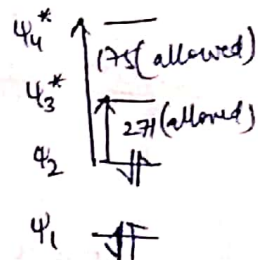 Ψ₄*
175(allowed)
Ψ₃*
271(allowed)
Ψ₂
Ψ₁